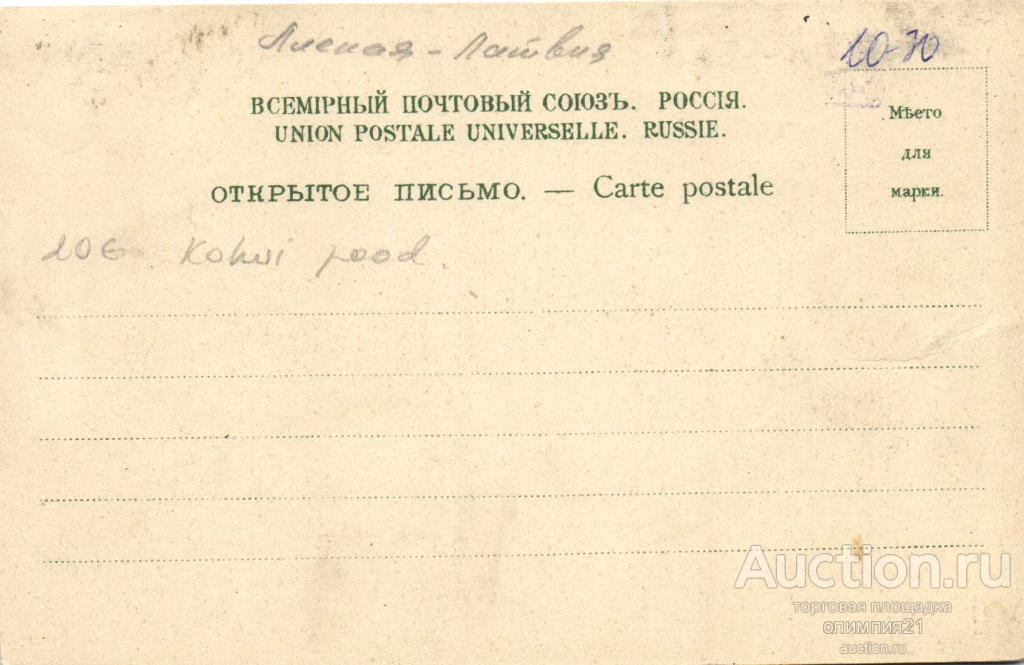 Латвия
10-70
ВСЕМІРНЫЙ ПОЧТОВЫЙ СОЮЗЪ. РОССІЯ.
UNION POSTALE UNIVERSELLE. RUSSIE.
Мѣсто
для
марки.
ОТКРЫТОЕ ПИСЬМО. — Carte postale
20€ Kohvi pood.
Auction.ru
торговая площадка
олимпия21
auction.ru